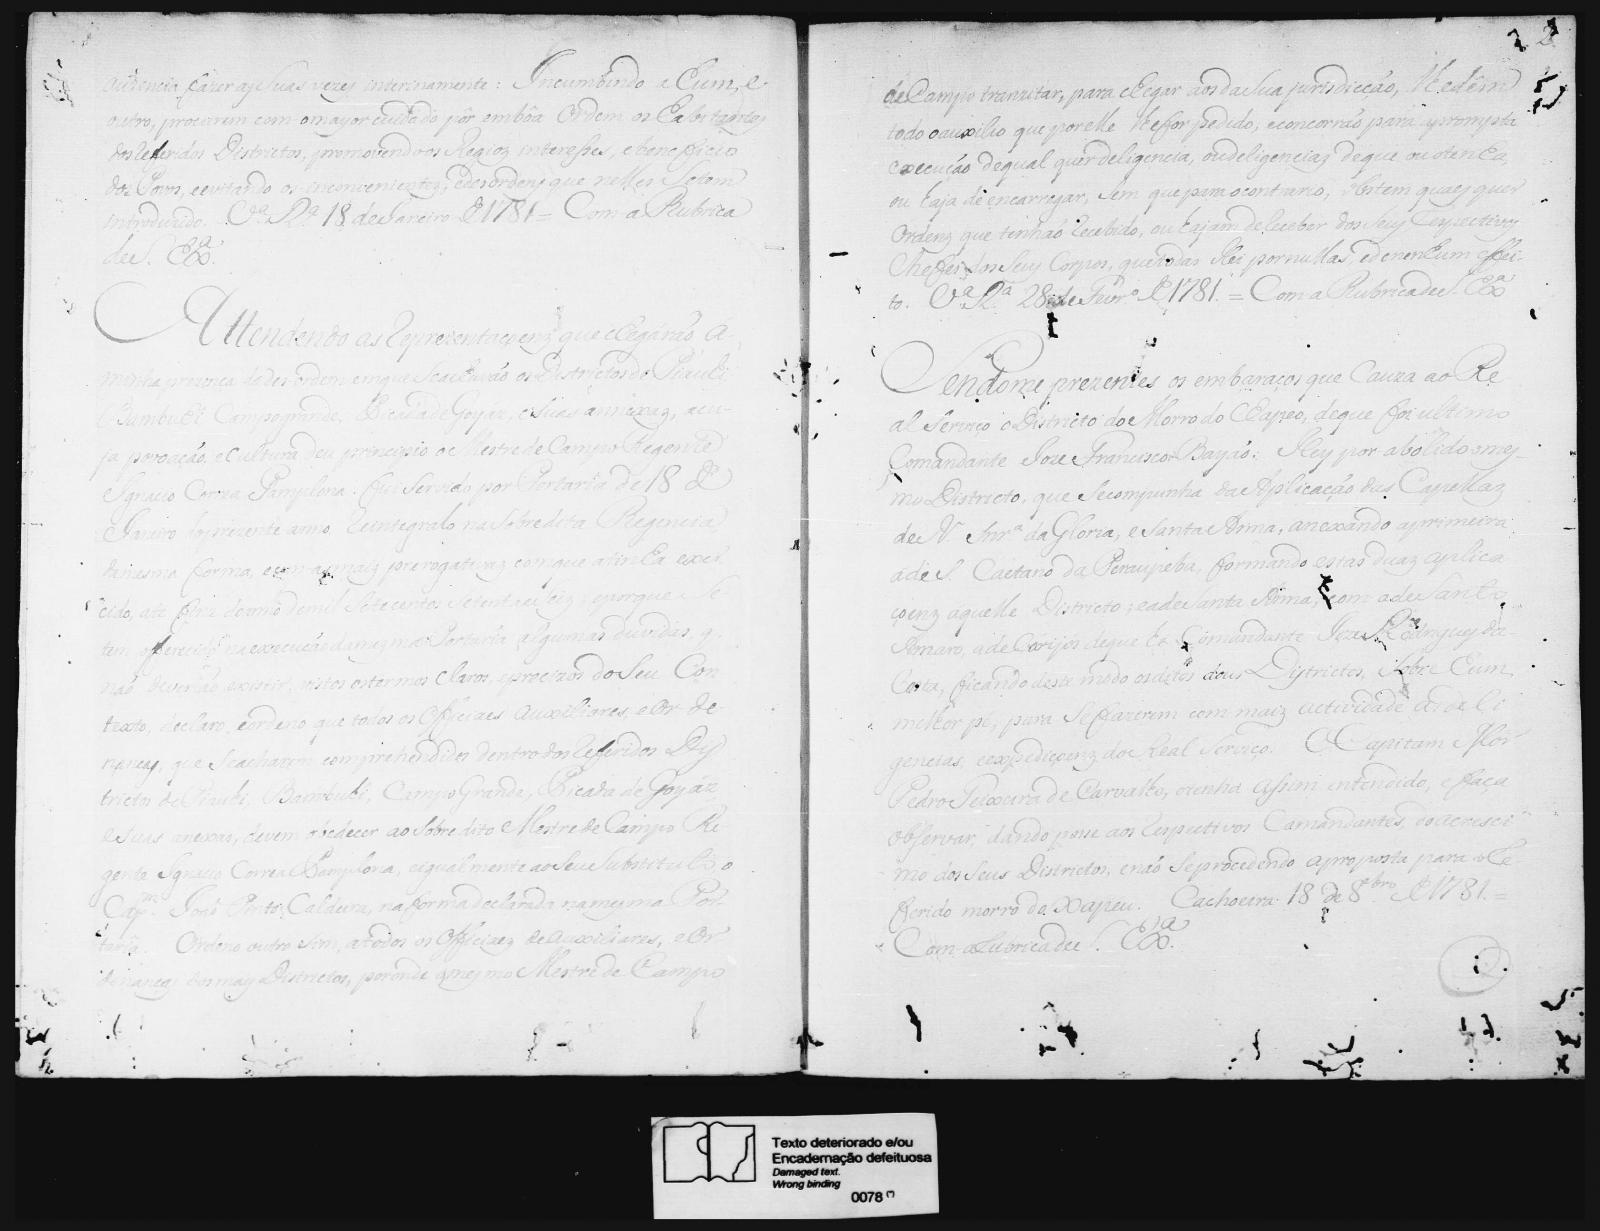 auzencia fazer as suas vezes interinamente: Incumbindo a hum, e
outro, procurem com o mayor cuidado pôr em bôa ordem os habitantes
dos referidos Districtos, promovendo os Regios interesses, e beneficio
dos Povos, e evitando os inconvenientes, e desordens que nelles se tem
introduzido. Va. Ra. 18 de Janeiro de 1781 = Com a Rubrica
de S. Exa.
Attendendo as reprezentaçoens que chegárão á
minha prezença da desordem em que se achavão os Districtos do Piauhi
Bambuhi Campo grande, Picada de Goyáz, e suas annexaz, a cu-
ja povoação, e cultura deu principio o Mestre de Campo Regente
Ignacio Correa Pamplona: fui servido por Portaria de 18 de
Janeiro do prezente anno reintegralo na sobredita Regencia
da mesma forma, e com as maiz prerogativaz com que a tinha exer
cido, até fins do anno de mil setecentos setenta e seiz; e porque se
tem offerecido na execução da mesma Portaria algumas duvidas, q
não deverião existir, vistos os termos claros, e precizos do seu Con
texto, declaro, e ordeno que todos os Officiaes Auxiliares, e Or de-
nanças, que se acharem comprehendidos dentro dos referidos Dis
trictos de Piauhi, Bambuhi, Campo Grande, Picada de Goyáz
e suas anexas, devem obedecer ao sobredito Mestre de Campo Re
gente Ignacio Correa Pamplona, e igualmente ao seu Substituto, o
Capm. João Pinto Caldeira, na forma declarada na mesma Por-
taria. Ordeno outro sim, a todos os Officiaez de Auxiliares, e Or
denanças dos mais Districtos, por onde o mesmo Mestre de Campo
2
de Campo tranzitar, para chegar aos da sua jurisdicção, lhe dêm
todo o auxilio que por elle lhe for pedido, e concorrão para a prompta
execução de qual quer deligencia, ou deligencias de que ou o tenha,
ou haja de encarregar, sem que para o contrario, obstem quaes quer
Ordens que tinhão recebido, ou hajam de receber dos seus respectivos
Cheffes dos seus Corpos, que todas Hei por nullas, e de nenhum effei-
to. Va. Ra. 28 de Fevro. de 1781. = Com a Rubrica de S. Exa
Sendome prezentes os embaraços que cauza ao Re
al Serviço o Districto do Morro do Chapeo, de que foi ultimo
Comandante Joze Francisco Bayão: Hey por abolido o mes-
mo Districto, que se compunha da Aplicação das Capellaz
de N. Snra. da Gloria, e Santa Anna, anexando a primeira
á de S. Caetano da Peraupeba, formando estas duaz aplica
çoenz aquelle Districto; e a de Santa Anna, com a de Santo
Amaro, á de Carijós de que he Comandante Joze Rodrigues da
Costa, ficando deste modo os ditos dous Districtos, sobre hum
milhor pé, para se fazerem com maiz actividade as deli
gencias, e expediçoenz do Real Serviço. O Capitam Mór
Pedro Teixeira de Carvalho, o tenha assim intendido, e faça
observar, dando posse aos respectivos Comandantes, do acresci
mo dos seus Districtos, e não se procedendo a proposta para o re
ferido morro do Xapeu. Cachoeira 18 de 8bro. de 1781. =
Com a Rubrica de S. Exa.
2
Texto deteriorado e/ou
Encadernação defeituosa
Damaged text.
Wrong binding
0078 (*)